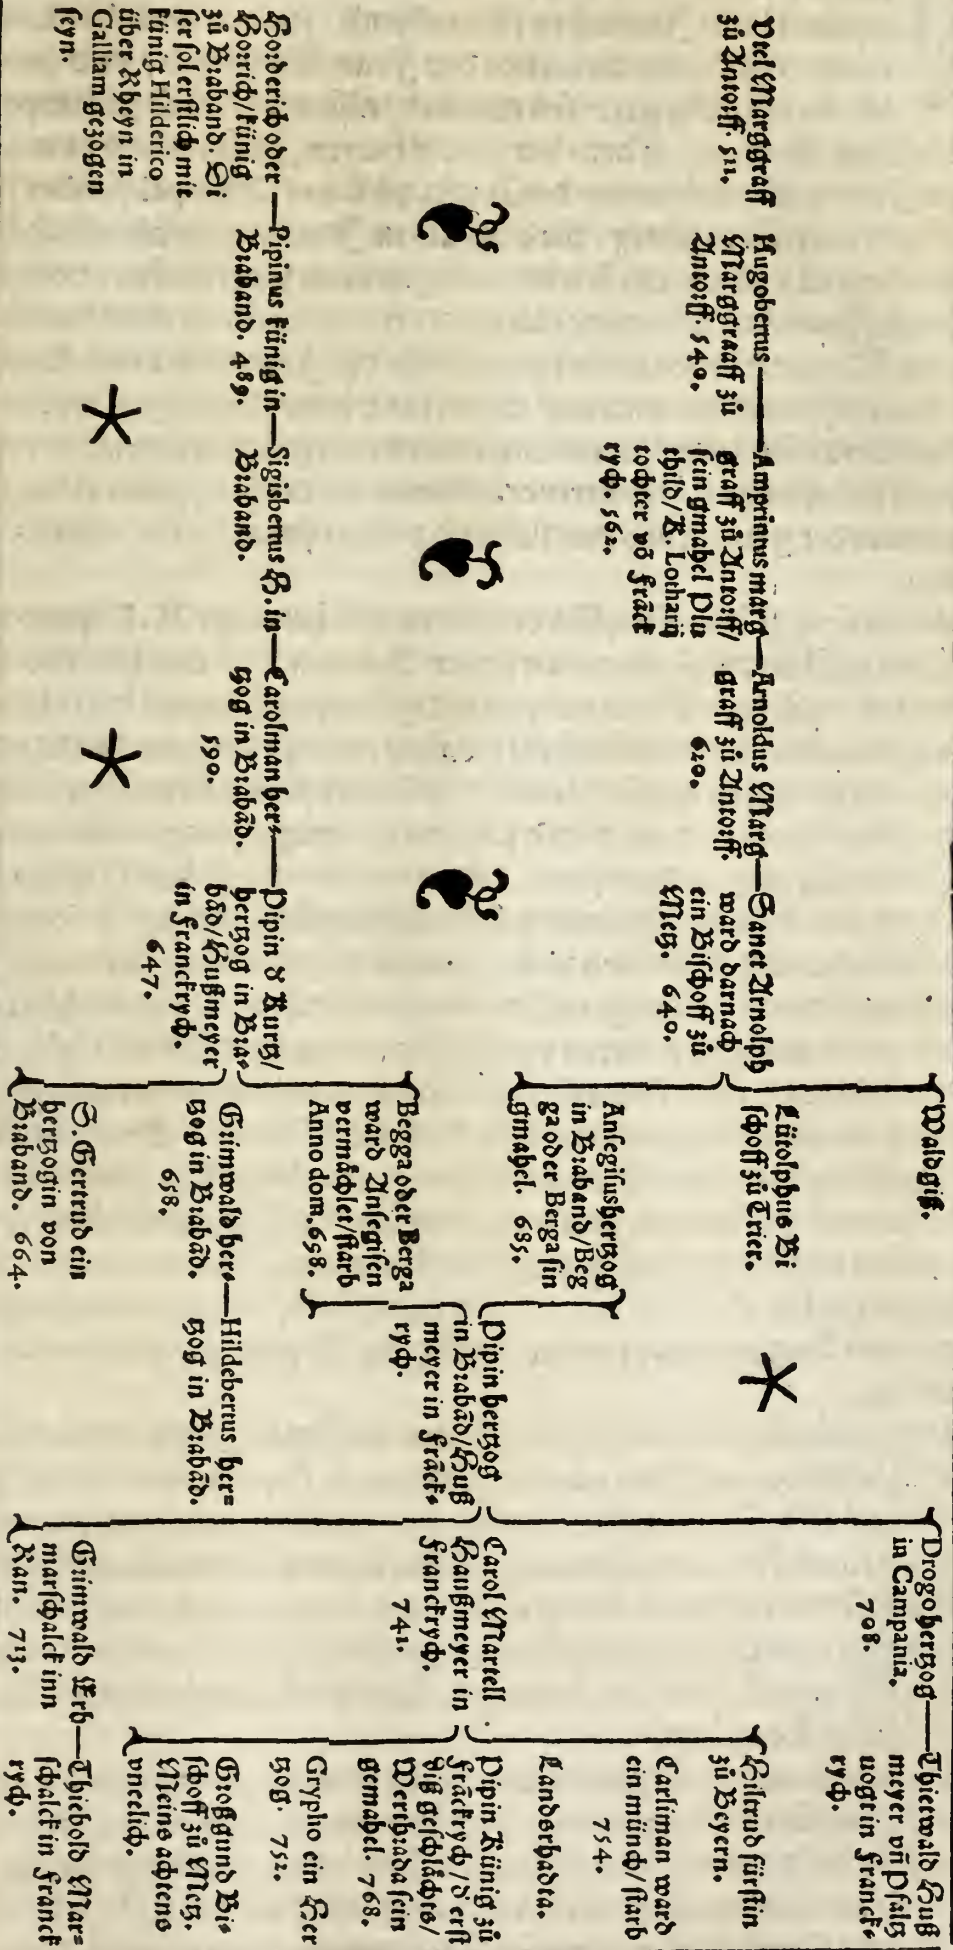 Vtel Marggraff
zů Antorff. 511.
Hugobertus
Marggraaff zů
Antorff. 540.
Amprintus marg
graff zů Antorff/
sein gmahel Plu
thild/K. Lotharij
tochter võ Frāck
rych. 562.
Arnoldus Marg
graff zů Antorff.
620.
Sanct Arnolph
ward darnach
ein Bischoff zů
Metz. 640.
Waldgiß.
Lütolphus Bi
schoff zů Trier.
Ansegisus hertzog
in Braband/Beg
ga oder Berga sin
gmahel. 685.
Horderich oder
Horrich/künig
zů Braband. Di
ser sol erstlich mit
künig Hilderico
über Rheyn in
Galliam gezogen
seyn.
Pipinus künig in
Braband. 489.
Sigisbertus H. in
Braband.
Carolman her-
tzog in Brabād.
590.
Pipin d Kurtz/
hertzog in Bra-
bād/Hußmeyer
in Franckrych.
647.
Begga oder Berga
ward Ansegisen
vermåchlet/starb
Anno dom. 698.
Grimwald her-
tzog in Brabād.
658.
Hildebertus her=
tzog in Brabād.
S. Gertrud ein
hertzogin von
Braband. 664.
Pipin hertzog
in Brabād/Huß
meyer in Frāck-
rych.
Drogo hertzog
in Campania.
708.
Thierwald Huß
meyer vñ Pfaltz
uogt in Franck-
rych.
Carol Martell
Haußmeyer in
Franckrych.
741.
Hiltrud fürstin
zů Beyern.
Carliman ward
ein münch/starb
754.
Landsrhadea.
Pipin Künig zů
Frāckrych/d erst
diß geschlåchts/
Werthrada sein
gemahel. 768.
Grypho ein Her
tzog. 752.
Großgund Bi-
schoff zů Metz.
Meins achtens
vneelich.
Grimwald Erb
marschalck inn
Ran. 713.
Thiebold Mar=
schalck in Franck
rych.